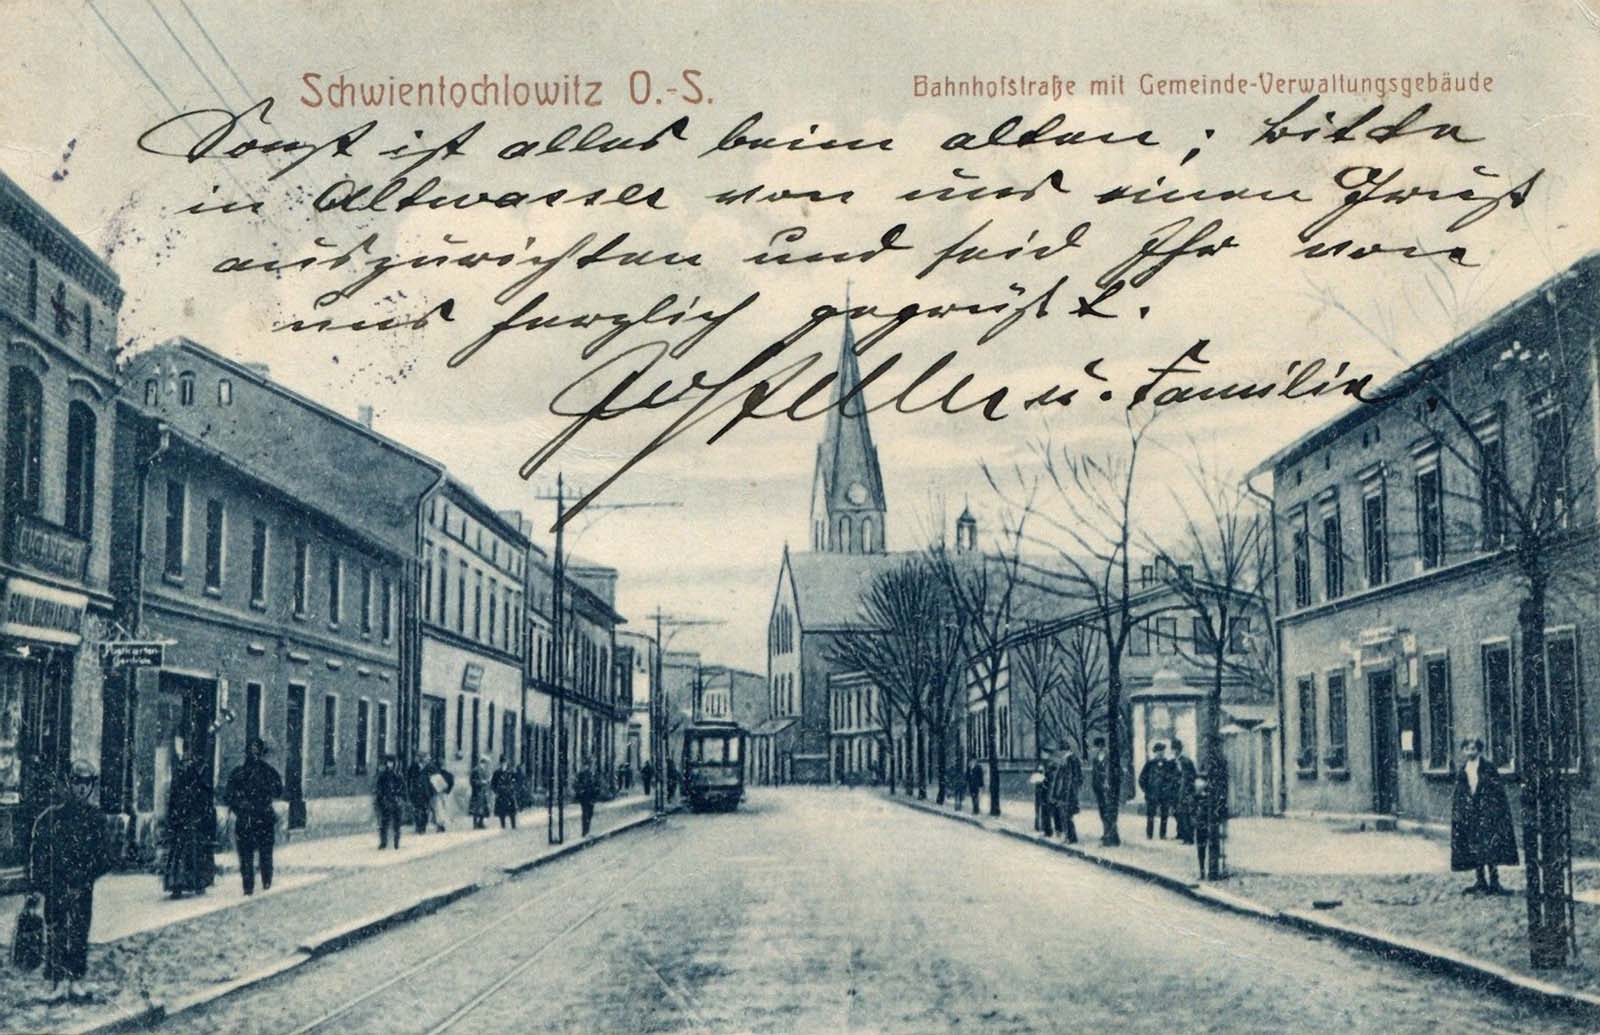 Schwientochlowitz O.-S.
Bahnhofstraße mit Gemeinde-Verwaltungsgebäude
Sonst ist alles beim alten; bitte
in Altwasser von uns einen Gruß
auszurichten und seid Ihr von
uns herzlich gegrüßt.
u. Familie
Postkarten
Centrale